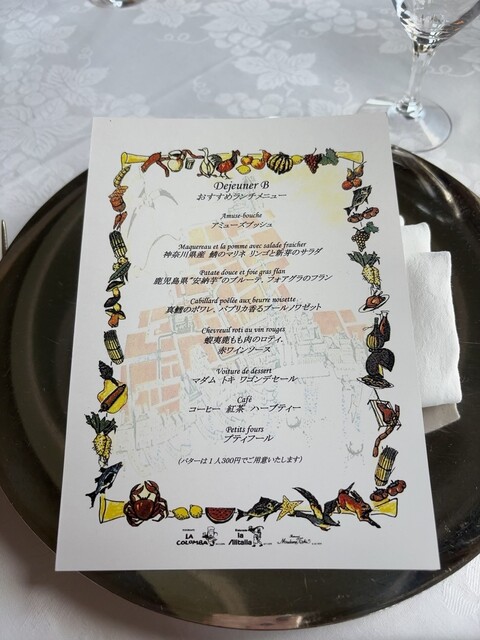 Dejeuner B
おすすめランチメニュー
Amuse-bouche
アミューズブッシュ
Maquereau et la pomme avec salade fraicher
神奈川県産 鯖のマリネ リンゴと新芽のサラダ
Patate douce et foie gras flan
鹿児島県"安納芋"のブルーテ、フォアグラのフラン
Cabillard poêlée aux beurre noisette
真鱈のポワレ、パプリカ香るブールノワゼット
Chevreuil roti au vin rouges
蝦夷鹿もも肉のロティ、
赤ワインソース
Voiture de dessert
マダム トキ ワゴンデセール
Café
コーヒー 紅茶 ハーブティー
Petits fours
プティフール
(バターは1人300円でご用意いたします)
LA COLOMBA
la Alitalia
Madame Toki